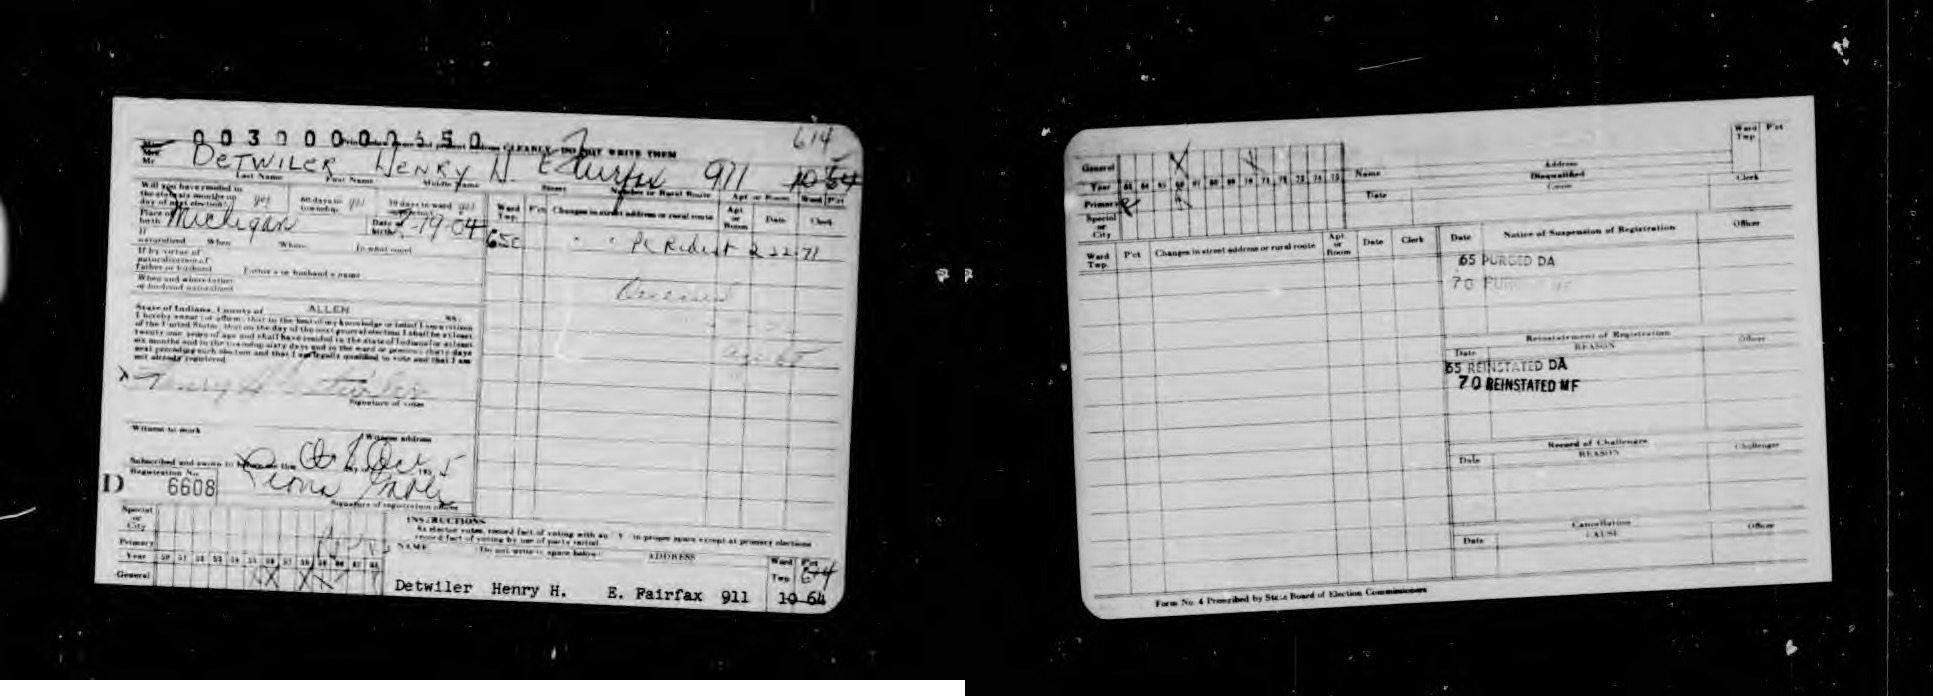 0030000
CLEARLY - DO NOT WRITE THEM
614
Mr
DETWILER HENRY H. E Fairfax 911 10 64
Last Name First Name Middle Name Street Number or Rural Route Apt or Room Ward P'ct
Will you have resided in
the state six months on yes 60 days in yes 30 days in ward yes
day of next election? township
Ward Twp. P'ct Changes in street address or rural route Apt or Room Date Clerk
Place of birth Michigan Date of birth -19-04
65C " " 2-22-71
If naturalized When Where In what court
If by virtue of
naturalization of
father or husband Father's or husband's name
When and where father
or husband naturalized
State of Indiana, County of ALLEN SS:
I hereby swear (or affirm) that to the best of my knowledge or belief I am a citizen
of the United States, that on the day of the next general election I shall be at least
twenty-one years of age and shall have resided in the state of Indiana for at least
six months and in the township sixty days and in the ward or precinct thirty days
next preceding such election and that I am legally qualified to vote and that I am
not already registered.
Signature of voter
Witness to mark Witness address
Subscribed and sworn to before me this day 195
Registration No.
D 6608
Signature of registration officer
Special or City
INSTRUCTIONS
As elector votes, record fact of voting with an X in proper space except at primary elections
record fact of voting by use of party initial.
Primary
NAME (Do not write in space below) ADDRESS
Year 50 51 52 53 54 55 56 57 58 59 60 61 62
Ward Twp P'ct
General
Detwiler Henry H. E. Fairfax 911 10 64
Ward Twp P'ct
General X
Name Address
Year 63 64 65 66 67 68 69 70 71 72 73 74 75
Disqualified
Primary
Date Cause Clerk
Special or City
Ward Twp. P'ct Changes in street address or rural route Apt or Room Date Clerk
Date Notice of Suspension of Registration Officer
65 PURGED DA
70 PURGED MF
Reinstatement of Registration
Date REASON Officer
65 REINSTATED DA
70 REINSTATED MF
Record of Challenges
Date REASON Challenger
Cancellation
Date CAUSE Officer
Form No. 4 Prescribed by State Board of Election Commissioners